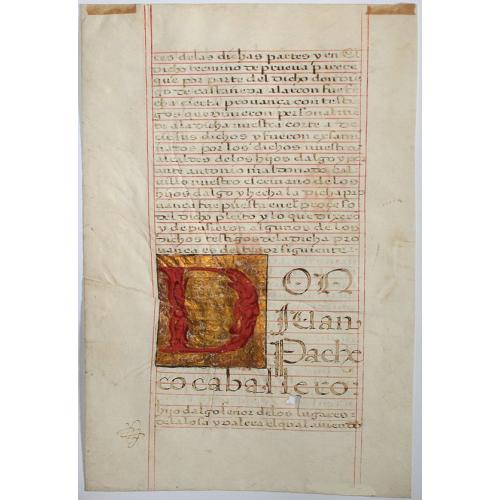 ces de las dichas partes y en el
dicho termino de prueva parece
que por parte del dicho don die
go de castañeda alarcon fue fe
cha cierta provança con testi
gos que vinieron personalme
te a la dicha nuestra corte a de
cir sus dichos y fueron exsami
nados por los dichos nuestros
alcaldes de los hijos dalgo y por
ante antonio maldonado
nuestro escrivano de los
hijos dalgo y hecha la dicha pro
vança fue puesta en el proceso
del dicho pleito y lo que dixero
y depusieron algunos de los
dichos testigos de la dicha pro
vança es del tenor siguiente
DON
Juan
Pache
co caballero:
hijo dalgo señor de los lugares
de la losa y valera el qual aviendo